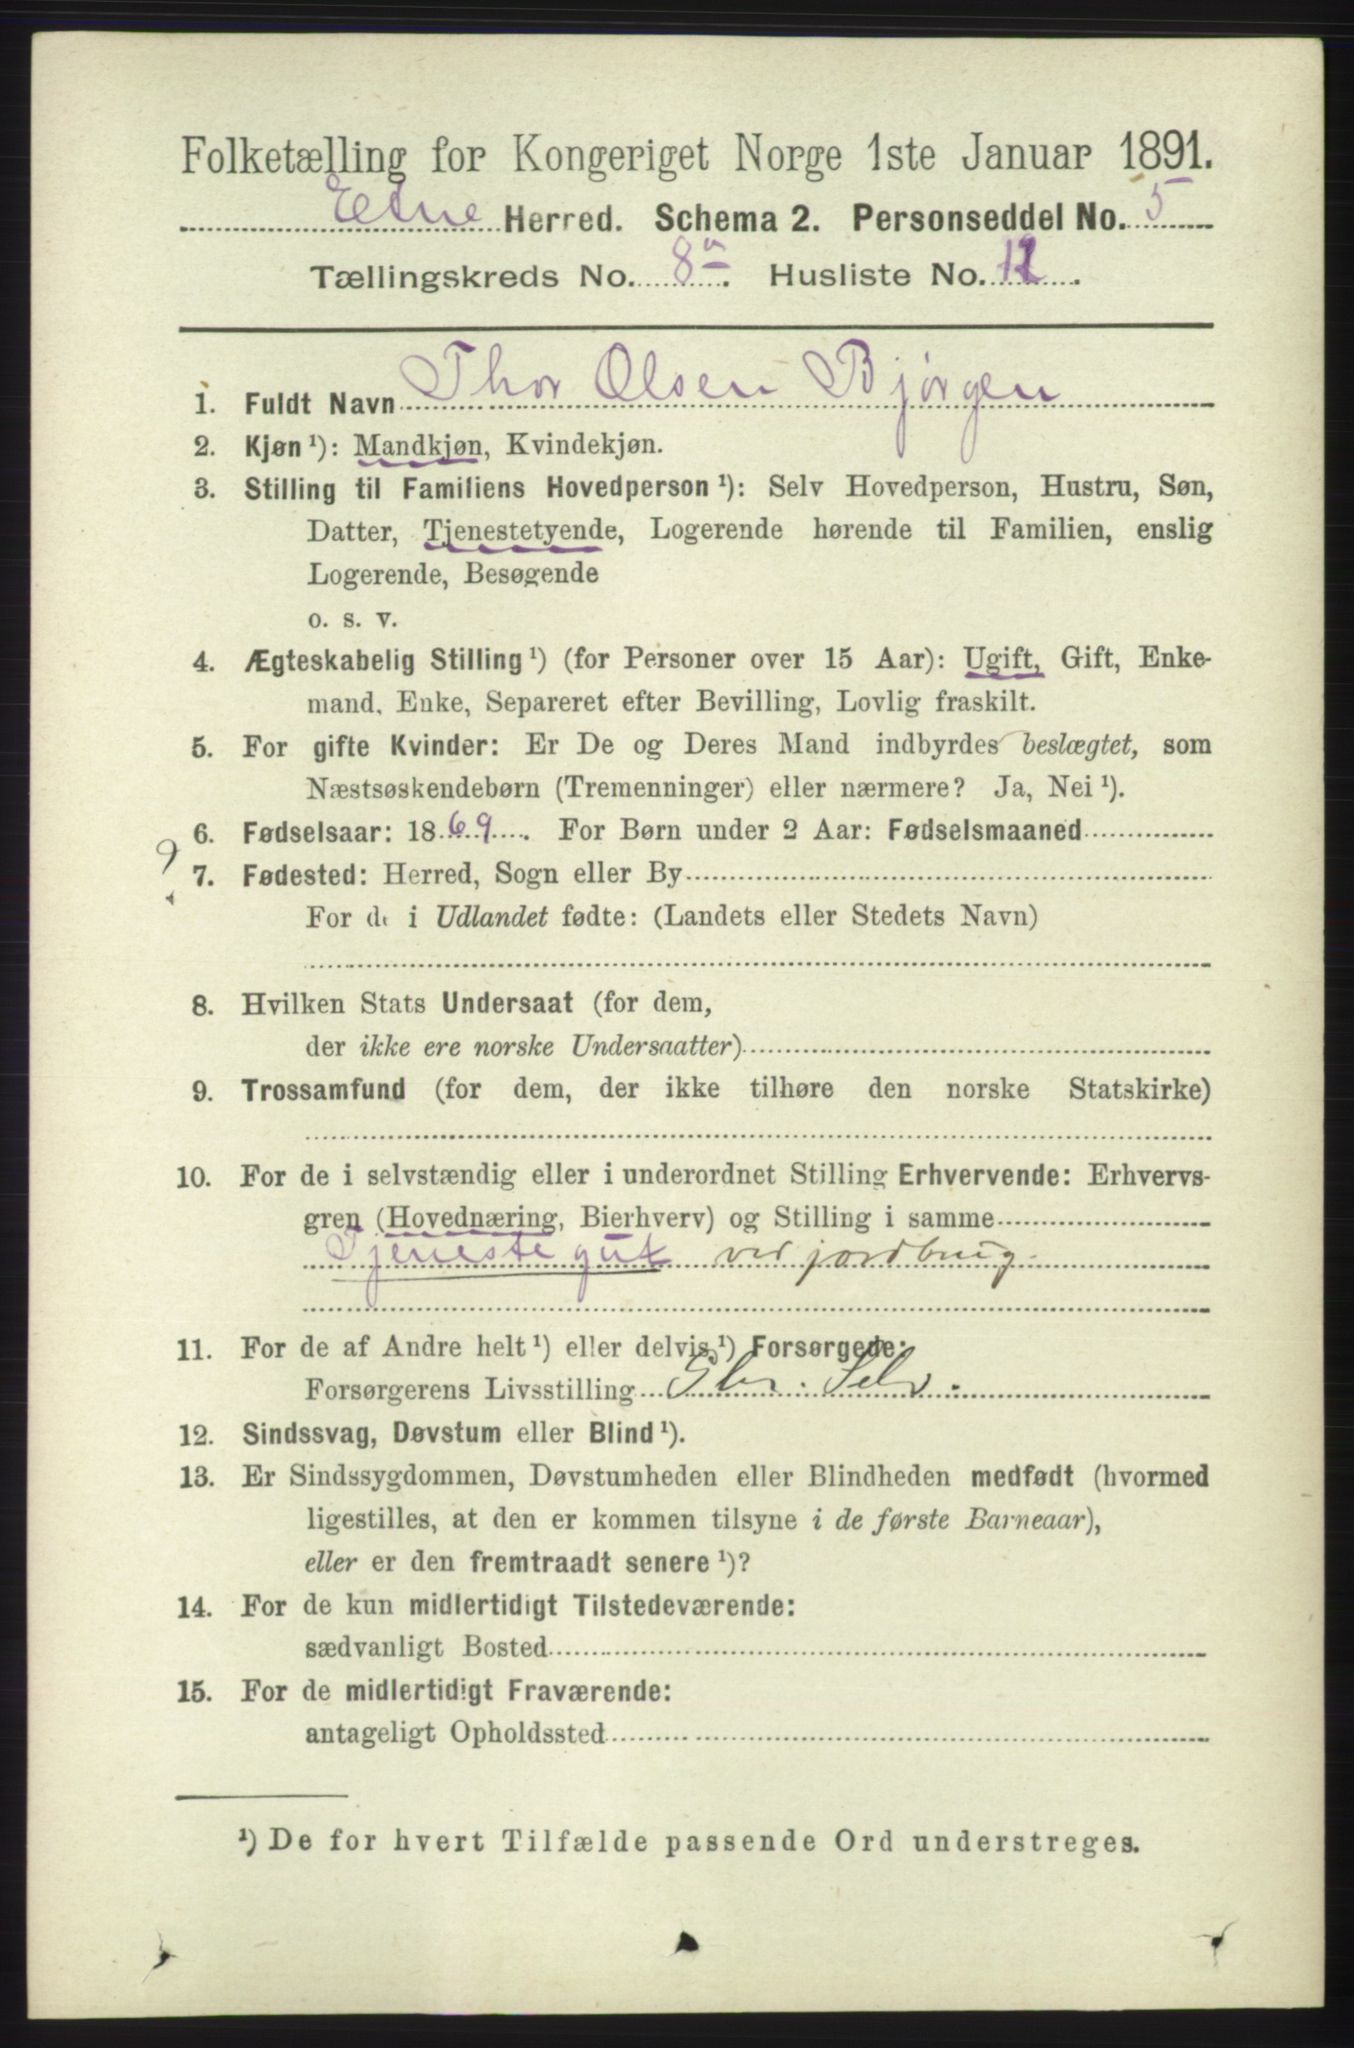 Folketælling for Kongeriget Norge 1ste Januar 1891.
Etne Herred. Schema 2. Personseddel No. 5
Tællingskreds No. 8a. Husliste No. 12.
1. Fuldt Navn Thor Olsen Bjørgen
2. Kjøn¹): Mandkjøn, Kvindekjøn.
3. Stilling til Familiens Hovedperson¹): Selv Hovedperson, Hustru, Søn,
Datter, Tjenestetyende, Logerende hørende til Familien, enslig
Logerende, Besøgende
o. s. v.
4. Ægteskabelig Stilling¹) (for Personer over 15 Aar): Ugift, Gift, Enke-
mand, Enke, Separeret efter Bevilling, Lovlig fraskilt.
5. For gifte Kvinder: Er De og Deres Mand indbyrdes beslægtet, som
Næstsøskendebørn (Tremenninger) eller nærmere? Ja, Nei¹).
6. Fødselsaar: 1869. For Børn under 2 Aar: Fødselsmaaned
7. Fødested: Herred, Sogn eller By
For de i Udlandet fødte: (Landets eller Stedets Navn)
8. Hvilken Stats Undersaat (for dem,
der ikke ere norske Undersaatter)
9. Trossamfund (for dem, der ikke tilhøre den norske Statskirke)
10. For de i selvstændig eller i underordnet Stilling Erhvervende: Erhvervs-
gren (Hovednæring, Bierhverv) og Stilling i samme
Tjenestegut ved jordbrug.
11. For de af Andre helt¹) eller delvis¹) Forsørgede:
Forsørgerens Livsstilling Selv.
12. Sindssvag, Døvstum eller Blind¹).
13. Er Sindssygdommen, Døvstumheden eller Blindheden medfødt (hvormed
ligestilles, at den er kommen tilsyne i de første Barneaar),
eller er den fremtraadt senere¹)?
14. For de kun midlertidigt Tilstedeværende:
sædvanligt Bosted
15. For de midlertidigt Fraværende:
antageligt Opholdssted
¹) De for hvert Tilfælde passende Ord understreges.